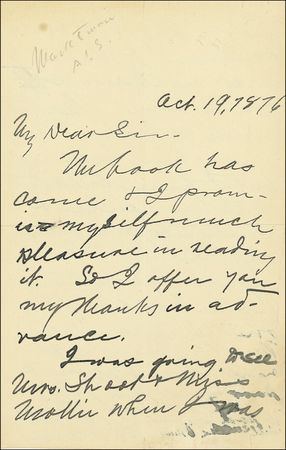 Mark Twain
A.L.S.
Oct. 19, 1876
My Dear Sir—
The book has
come & I prom-
ise myself much
pleasure in reading
it. So I offer you
my thanks in ad-
vance.
I was going to call
Mrs. Shook & Miss
Mollie when I was